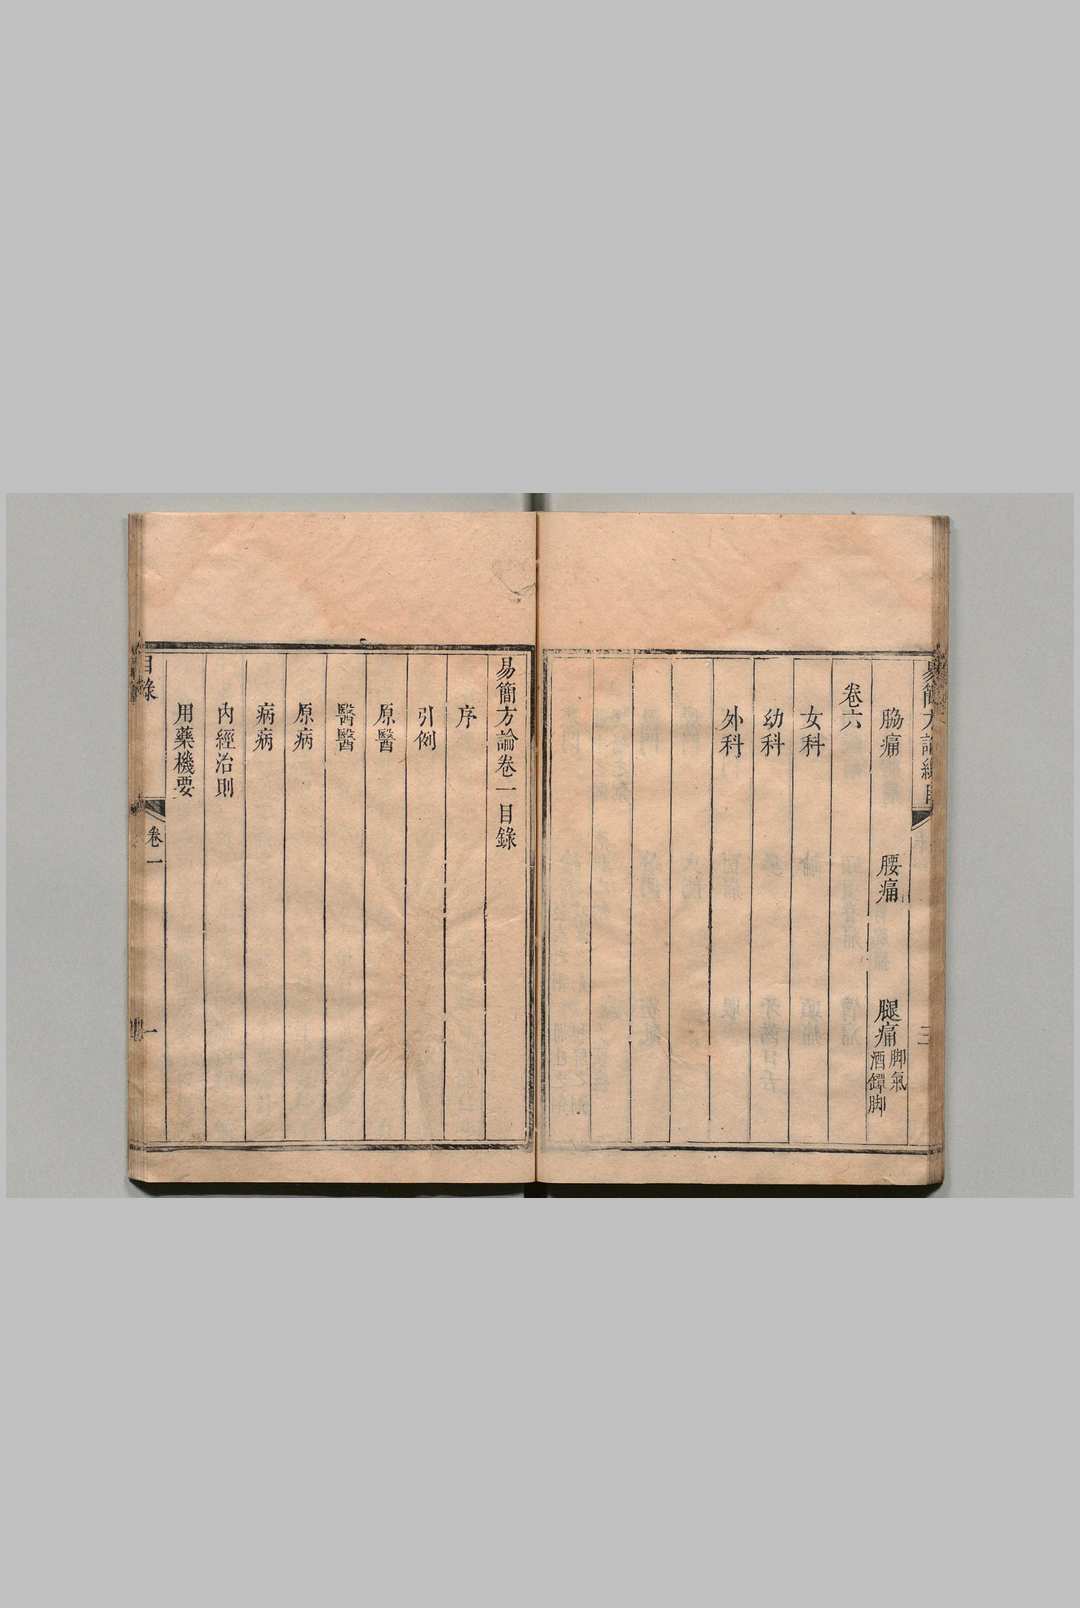 易簡方論總目
三
脇痛 腰痛 腿痛 脚氣 酒鐔脚
卷六
女科
幼科
外科
易簡方論卷一目錄
序
引例
原醫
醫醫
原病
病病
內經治則
用藥機要
目錄
卷一
一